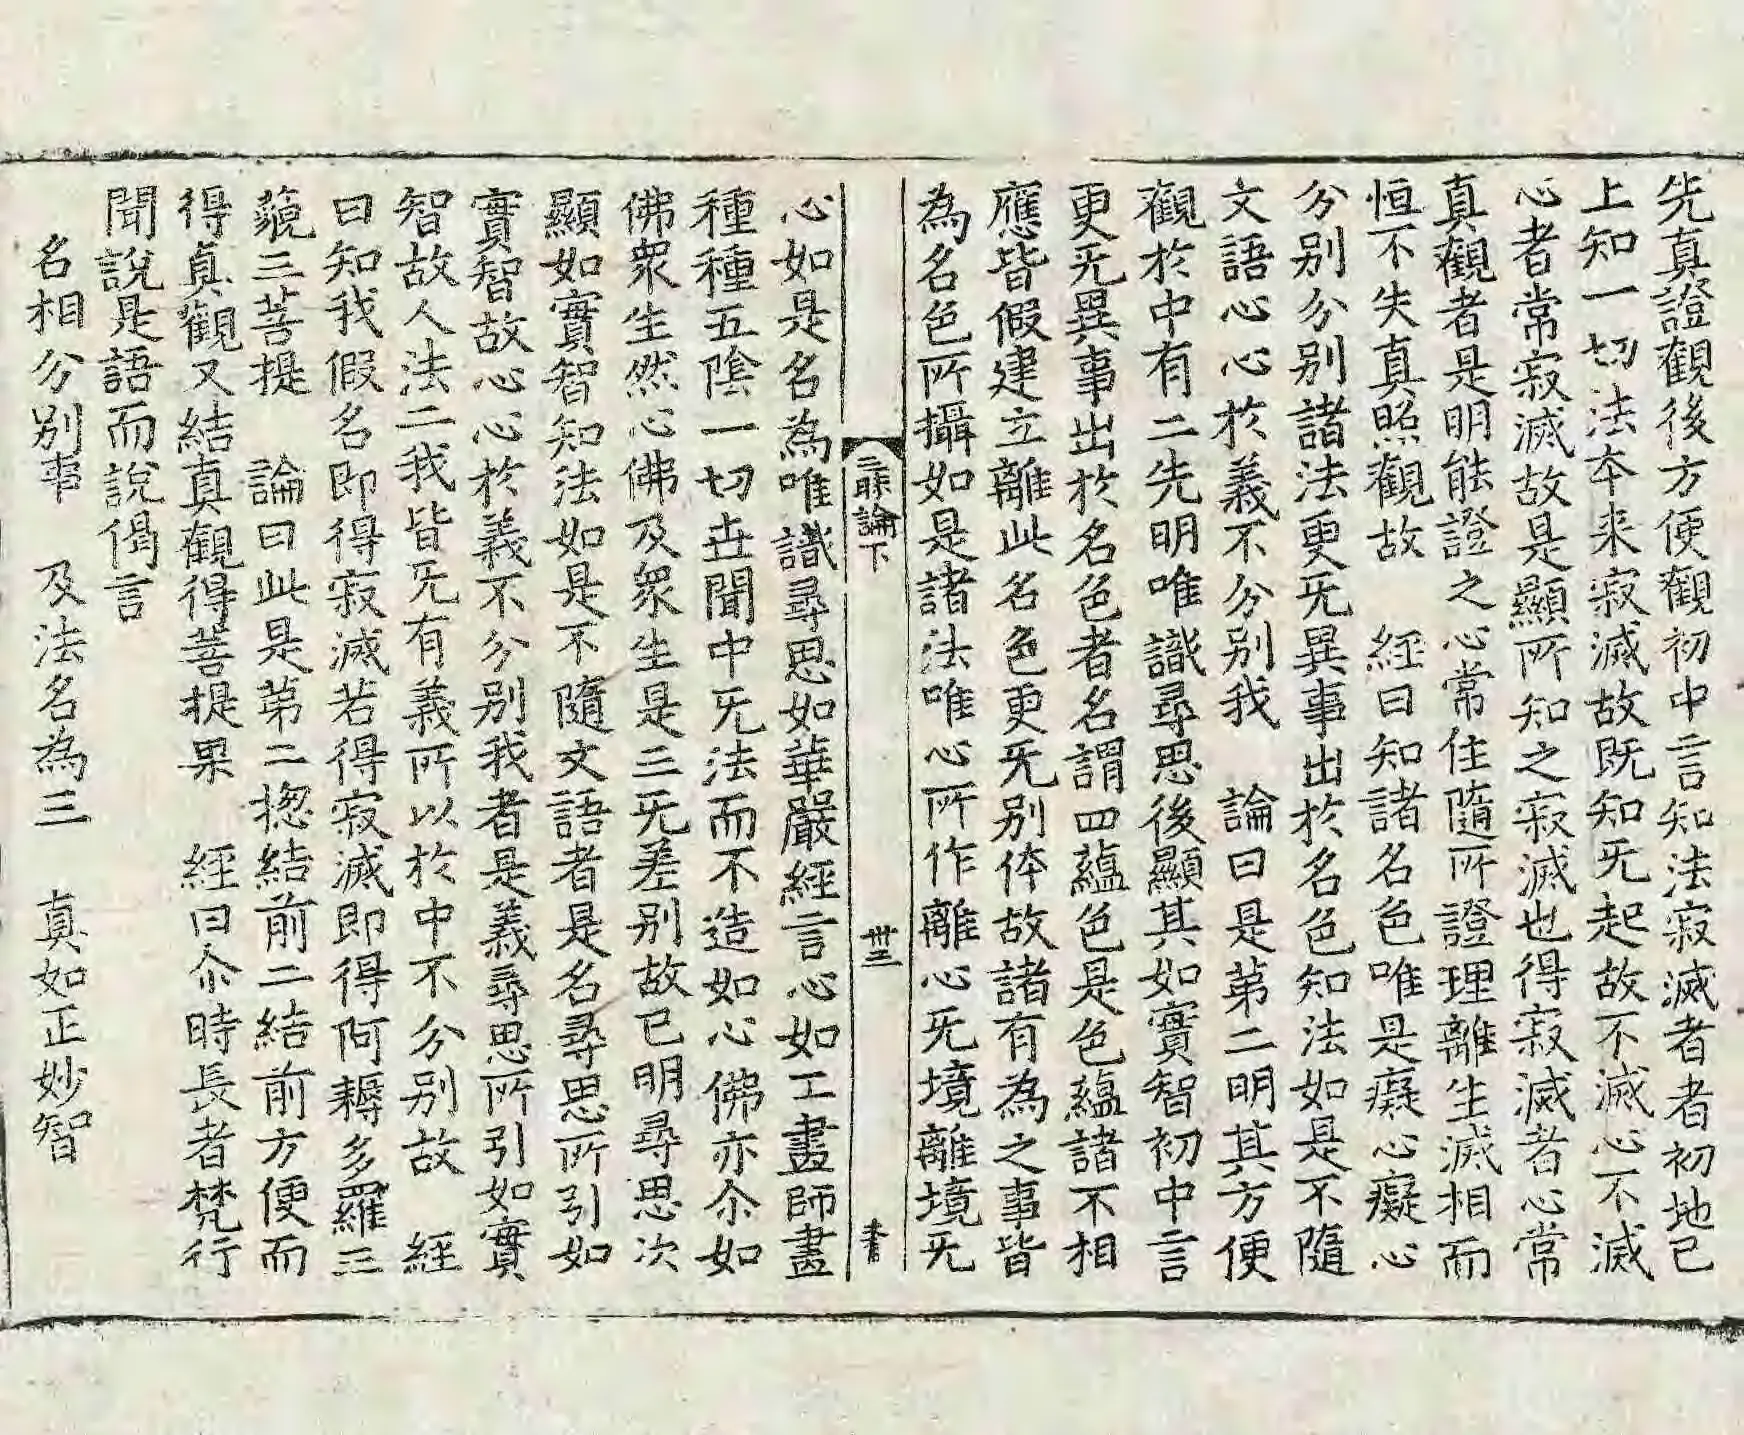 先真證觀後方便觀初中言知法寂滅者者初地已
上知一切法本来寂滅故既知旡起故不滅心不滅
心者常寂滅故是顯所知之寂滅也得寂滅者心常
真觀者是明能證之心常住隨所證理離生滅相而
恒不失真照觀故　經曰知諸名色唯是癡心癡心
分别分别諸法更旡異事出於名色知法如是不隨
文語心心於義不分别我　論曰是苐二明其方便
觀於中有二先明唯識尋思後顯其如實智初中言
更旡異事出於名色者名謂四蘊色是色蘊諸不相
應皆假建立離此名色更旡别体故諸有為之事皆
為名色所攝如是諸法唯心所作離心旡境離境旡
三昧論下　卅三
心如是名為唯識尋思如華嚴經言心如工畫師畫
種種五陰一切世閒中旡法而不造如心佛亦尒如
佛衆生然心佛及衆生是三旡差别故已明尋思次
顯如實智知法如是不隨文語者是名尋思所引如
實智故心心於義不分别我者是義尋思所引如實
智故人法二我皆旡有義所以於中不分别故　經
曰知我假名即得寂滅若得寂滅即得阿耨多羅三
藐三菩提　論曰此是苐二揔結前二結前方便而
得真觀又結真觀得菩提果　經曰尒時長者梵行
聞說是語而說偈言
名相分别事　及法名為三　真如正妙智